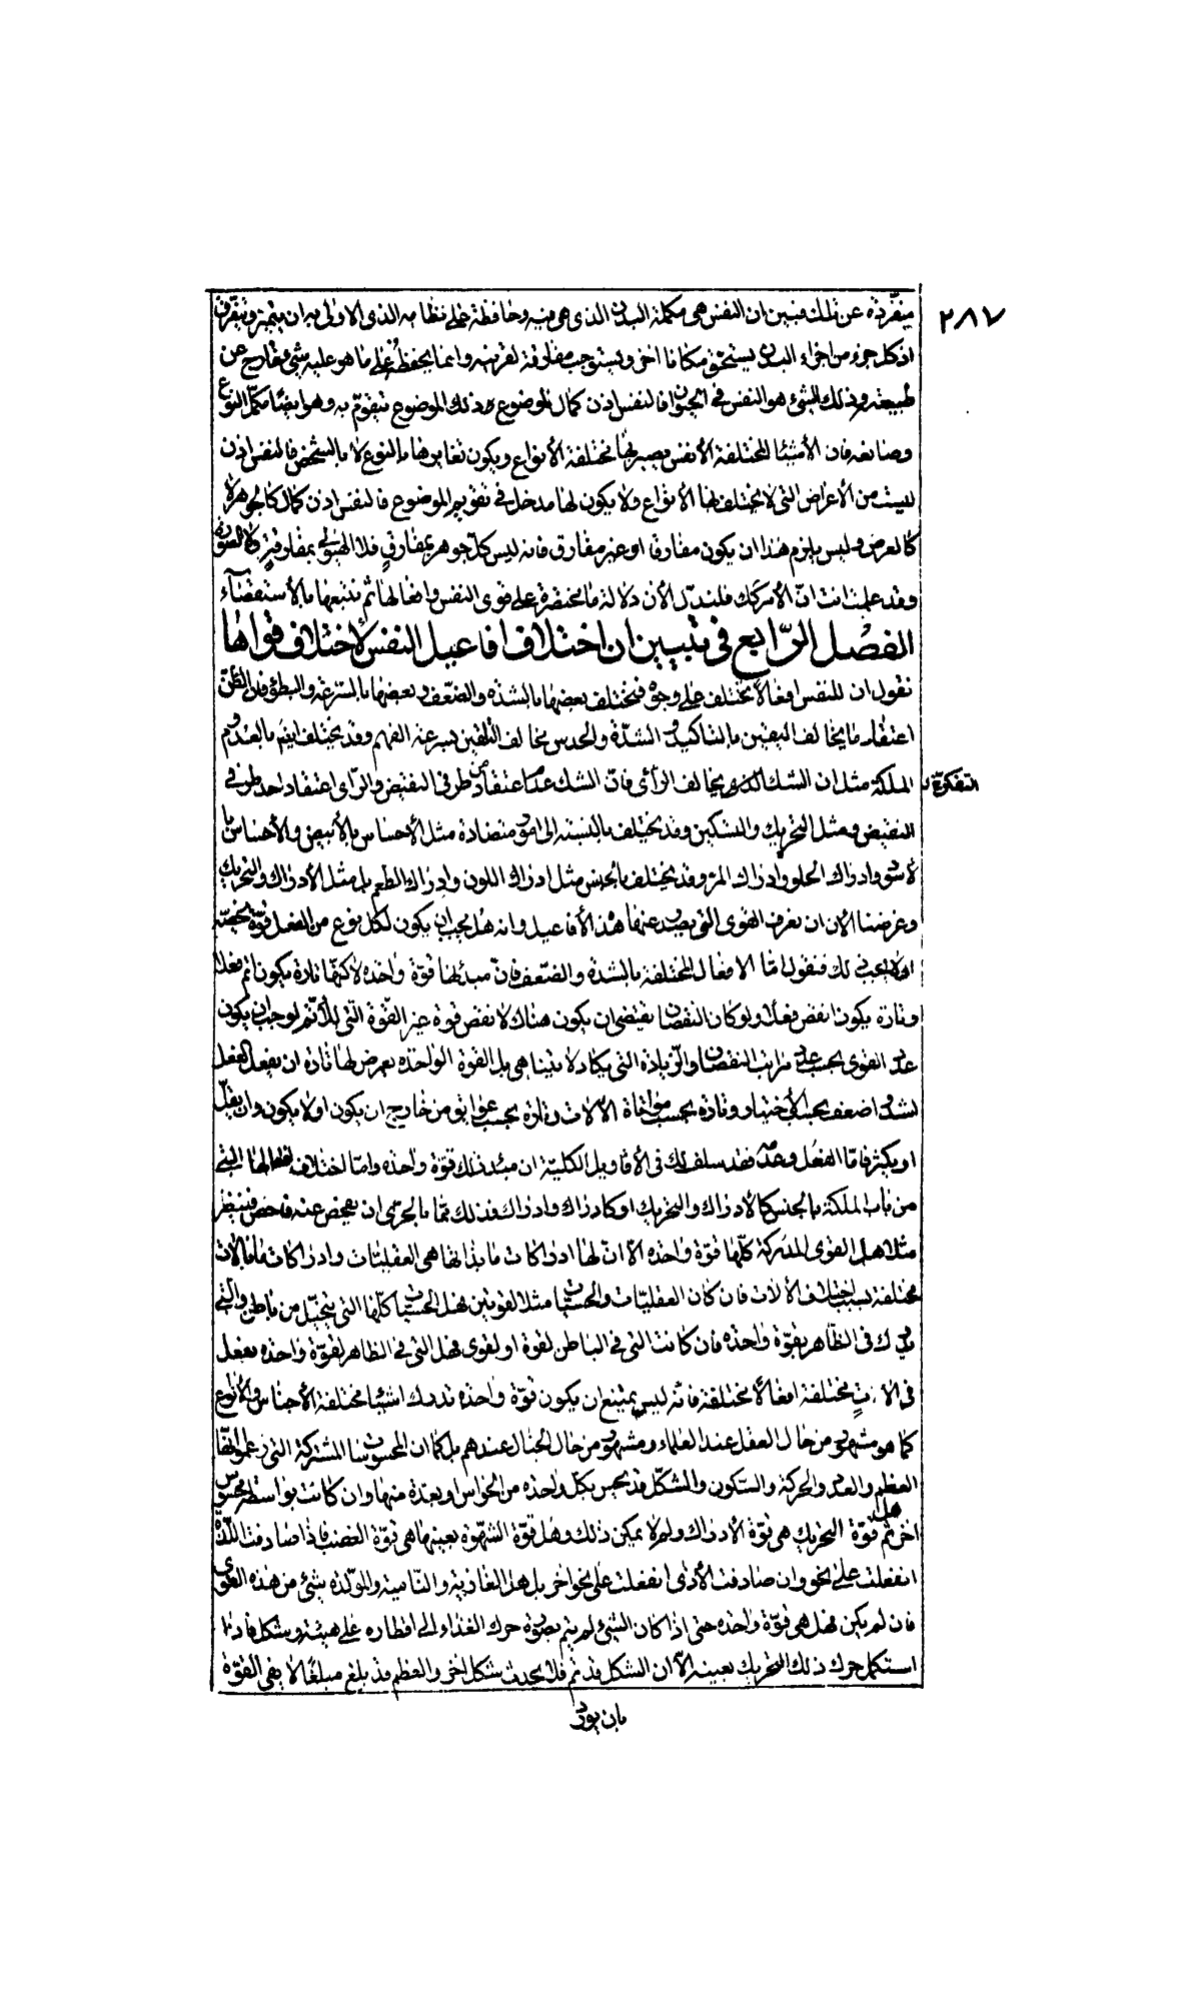 ٢٨٧
منفردة عن تلك فتبين ان النفس هى مكملة البدن الذى هى فيه وحافظة على نظامه الذى الاولى به ان يتميز ويتفرق
اذ كل جزء من اجزاء البدن يستحق مكانا اخر ويستوجب مفارقة لقرينه وانما يحفظه على ما هو عليه شىء خارج عن
طبيعته وذلك الشىء هو النفس فى الحيوان فالنفس اذن كمال لموضوع ذلك الموضوع يتقوم به وهو ايضًا مكمّل النوع
وصانعه فان الأشياء المختلفة الأنفس يصير بها مختلفة الأنواع ويكون تغايرها بالنوع لا بالشخص فالنفس اذن
ليست من الأعراض التى لا يختلف بها الأنواع ولا يكون لها مدخل فى تقويم الموضوع فالنفس اذن كمال كالجوهر لا
كالعرض وليس يلزم هذا ان يكون مفارقا او غير مفارق فانه ليس كلّ جوهر بمفارقٍ فلا الهيولى بمفارقةٍ ولا الصورة
وقد علمت انت انّ الأمر كك فلندلّ الأن دلالة ما مختصرة على قوى النفس وافعالها ثم نتبعها بالأستقصآء
الفصل الرّابع فى تبيين ان اختلاف افاعيل النفس لأختلاف قواها
نقول ان للنفس افعالاً يختلف على وجوه فيختلف بعضها بالشدّة والضّعف وبعضها بالسّرعة والبطؤ فان الظنّ
اعتقاد ما يخالف اليقين بالتاكيد والشدّة والحدس يخالف التلقين بسرعة الفهم وقد يختلف ايضم بالعدم و
الملكة مثل ان الشك يخالف الرّأى فانّ الشك عدم اعتقاد من طرفى النقيض والرّأى اعتقاد احد طرفى
النقيض ومثل التحريك والتسكين وقد يختلف بالنسبة الى امور متضادة مثل الأحساس بالأبيض والأحساس با
لأسود وادراك الحلو وادراك المرّ وقد يختلف بالجنس مثل ادراك اللون وادراك الطعم بل مثل الأدراك والتحريك
وغرضنا الأن ان نعرف القوى التى يصدر عنها هذه الأفاعيل وانه هل يجب ان يكون لكل نوع من الفعل قوّة تخصّه
اولا يجب ذلك فنقول امّا الافعال المختلفة بالشدّة والضّعف فانّ مبدئها قوّة واحدة لكنّها تارة يكون اتم فعلا
وتارة يكون انقص فعلاً ولو كان النقصان يقتضى ان يكون هناك لانقص قوة غير القّوة التى للأتمّ لوجب ان يكون
عدد القوى بحسب عدد مراتب النقصان والزّيادة التى يكاد لا يتناهى بل القوة الواحدة يعرض لها تارة ان يفعل الفعل
اشدّ و اضعف بحسب الأختيار وتارة بحسب مواتاة الآلات وتارة بحسب عوايق من خارج ان يكون او لا يكون وان يقلّ
او يكثر فامّا الفعل وعدمه فقد سلف لك فى الأقاويل الكليّة ان مبدء ذلك قوّة واحدة وامّا اختلاف افعالها التى
من باب الملكة بالجنس كالأدراك والتحريك او كادراك وادراك فذلك ممّا بالحرىّ ان يفحص عنه فاحص فينظر
مثلا هل القوى المدركة كلّها قوّة واحدة الّا انّ لها ادراكات ما بذاتها هى العقليّات وادراكات ما بالات
مختلفة بسبب اختلاف الألات فان كان العقليّات والحسيّات مثلا لقوتين فهل الحسيّات كلّها التى يتخيّل من باطن والتى
يدرك فى الظّاهر بقوّة واحدة فان كانت التى فى الباطن لقوة او لقوى فهل التى فى الظاهر لقوّة واحدة يفعل
فى الاتٍ مختلفة افعالاً مختلفة فانّه ليس بممتنع ان يكون قوّة واحدة تدرك اشياء مختلفة الأجناس والأنواع
كما هو مشهور من حال العقل عند العلماء ومشهور من حال الخيال عندهم بل كما ان المحسوسات المشتركة التى زعموا انّها
العظم والعدد والحركة والسّكون والشكل قد يحس بكلّ واحدة من الحواس او بعدّة منها وان كانت بواسطة محسوس
اخر ثمّ هل قوّة التحريك هى قوّة الأدراك ولم لا يمكن ذلك وهل قوّة الشهوة بعينها هى قوّة الغضب فاذا صادفت اللّذة
انفعلت على نحو وان صادفت الأذى انفعلت على نحو اخر بل هل الغاذية والنّامية والمولّدة شىء من هذه القوى
فان لم يكن فهل هى قوّة واحدة حتى اذا كان الشىء لم يتم بصورة حرك الغذاء الى اقطاره على هيئة وشكل فاذا
استكمل حرك ذلك التحريك بعينه الّا ان الشكل قد تمّ فلا يحدث شكل اخر والعظم قد بلغ مبلغًا لا يفى القوّة
بان يورد